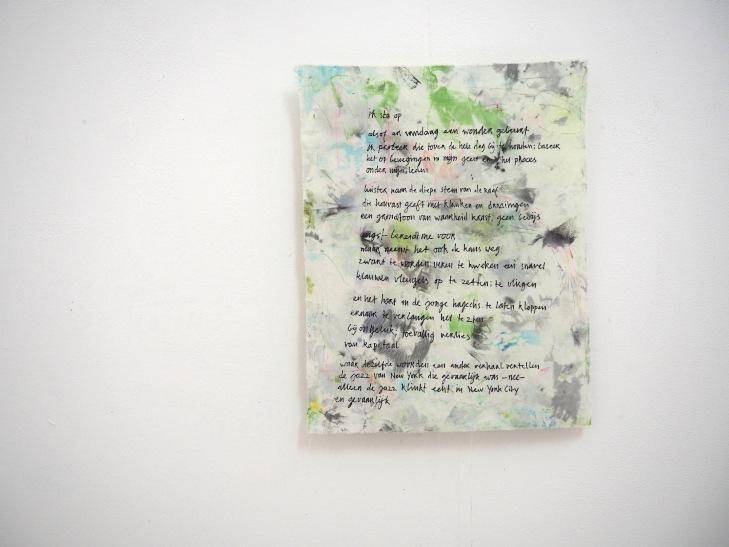 ik sta op
alsof er vandaag een wonder gebeurt
ik probeer die tover de hele dag bij te houden;
het op bewegingen in mijn geest en het proces
onder mijn leden
luister naar de diepe stem van de raaf
die houvast geeft met klanken en
een grondtoon van waarheid krast, geen bewijs
angst
maar neemt het ook de kans weg
zwart te worden veren te kweken een snavel
klauwen vleugels op te zetten; te vliegen
en het hart in de jonge hagedis te laten kloppen
ernaar te verlangen het te zien
bij ongeluk; toevallig verlies
van kapitaal
waar dezelfde woorden een ander verhaal vertellen
de jazz van New York die gevaarlijk was – nee –
alleen de jazz klinkt echt in New York City
en gevaarlijk